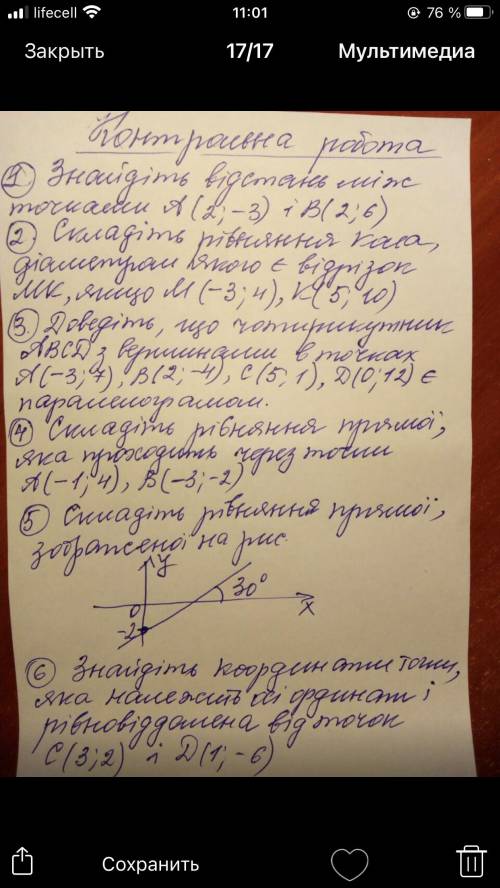 lifecell
11:01
76 %
Закрыть
17/17
Мультимедиа
Контрольна робота
1 Знайдіть відстань між
точками A(2;-3) і B(2;6)
2. Складіть рівняння кола,
діаметром якого є відрізок
МК, якщо М(-3;4), К(5;10)
3. Доведіть, що чотирикутник
ABCD з вершинами в точках
A(-3;7), B(2;-4), C(5;1), D(0;12) є
паралелограмом.
4 Складіть рівняння прямої,
яка проходить через точки
A(-1;4), B(-3;-2)
5 Складіть рівняння прямої,
зображеної на рис.
y
30°
0
x
-2
6 Знайдіть координати точки,
яка належить осі ординат і
рівновіддалена від точок
C(3;2) і D(1;-6)
Сохранить